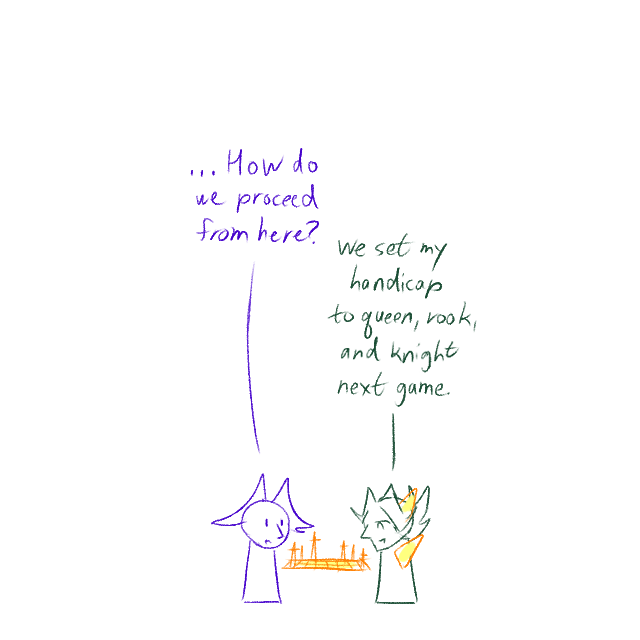 ... How do
we proceed
from here?
We set my
handicap
to queen, rook,
and knight
next game.